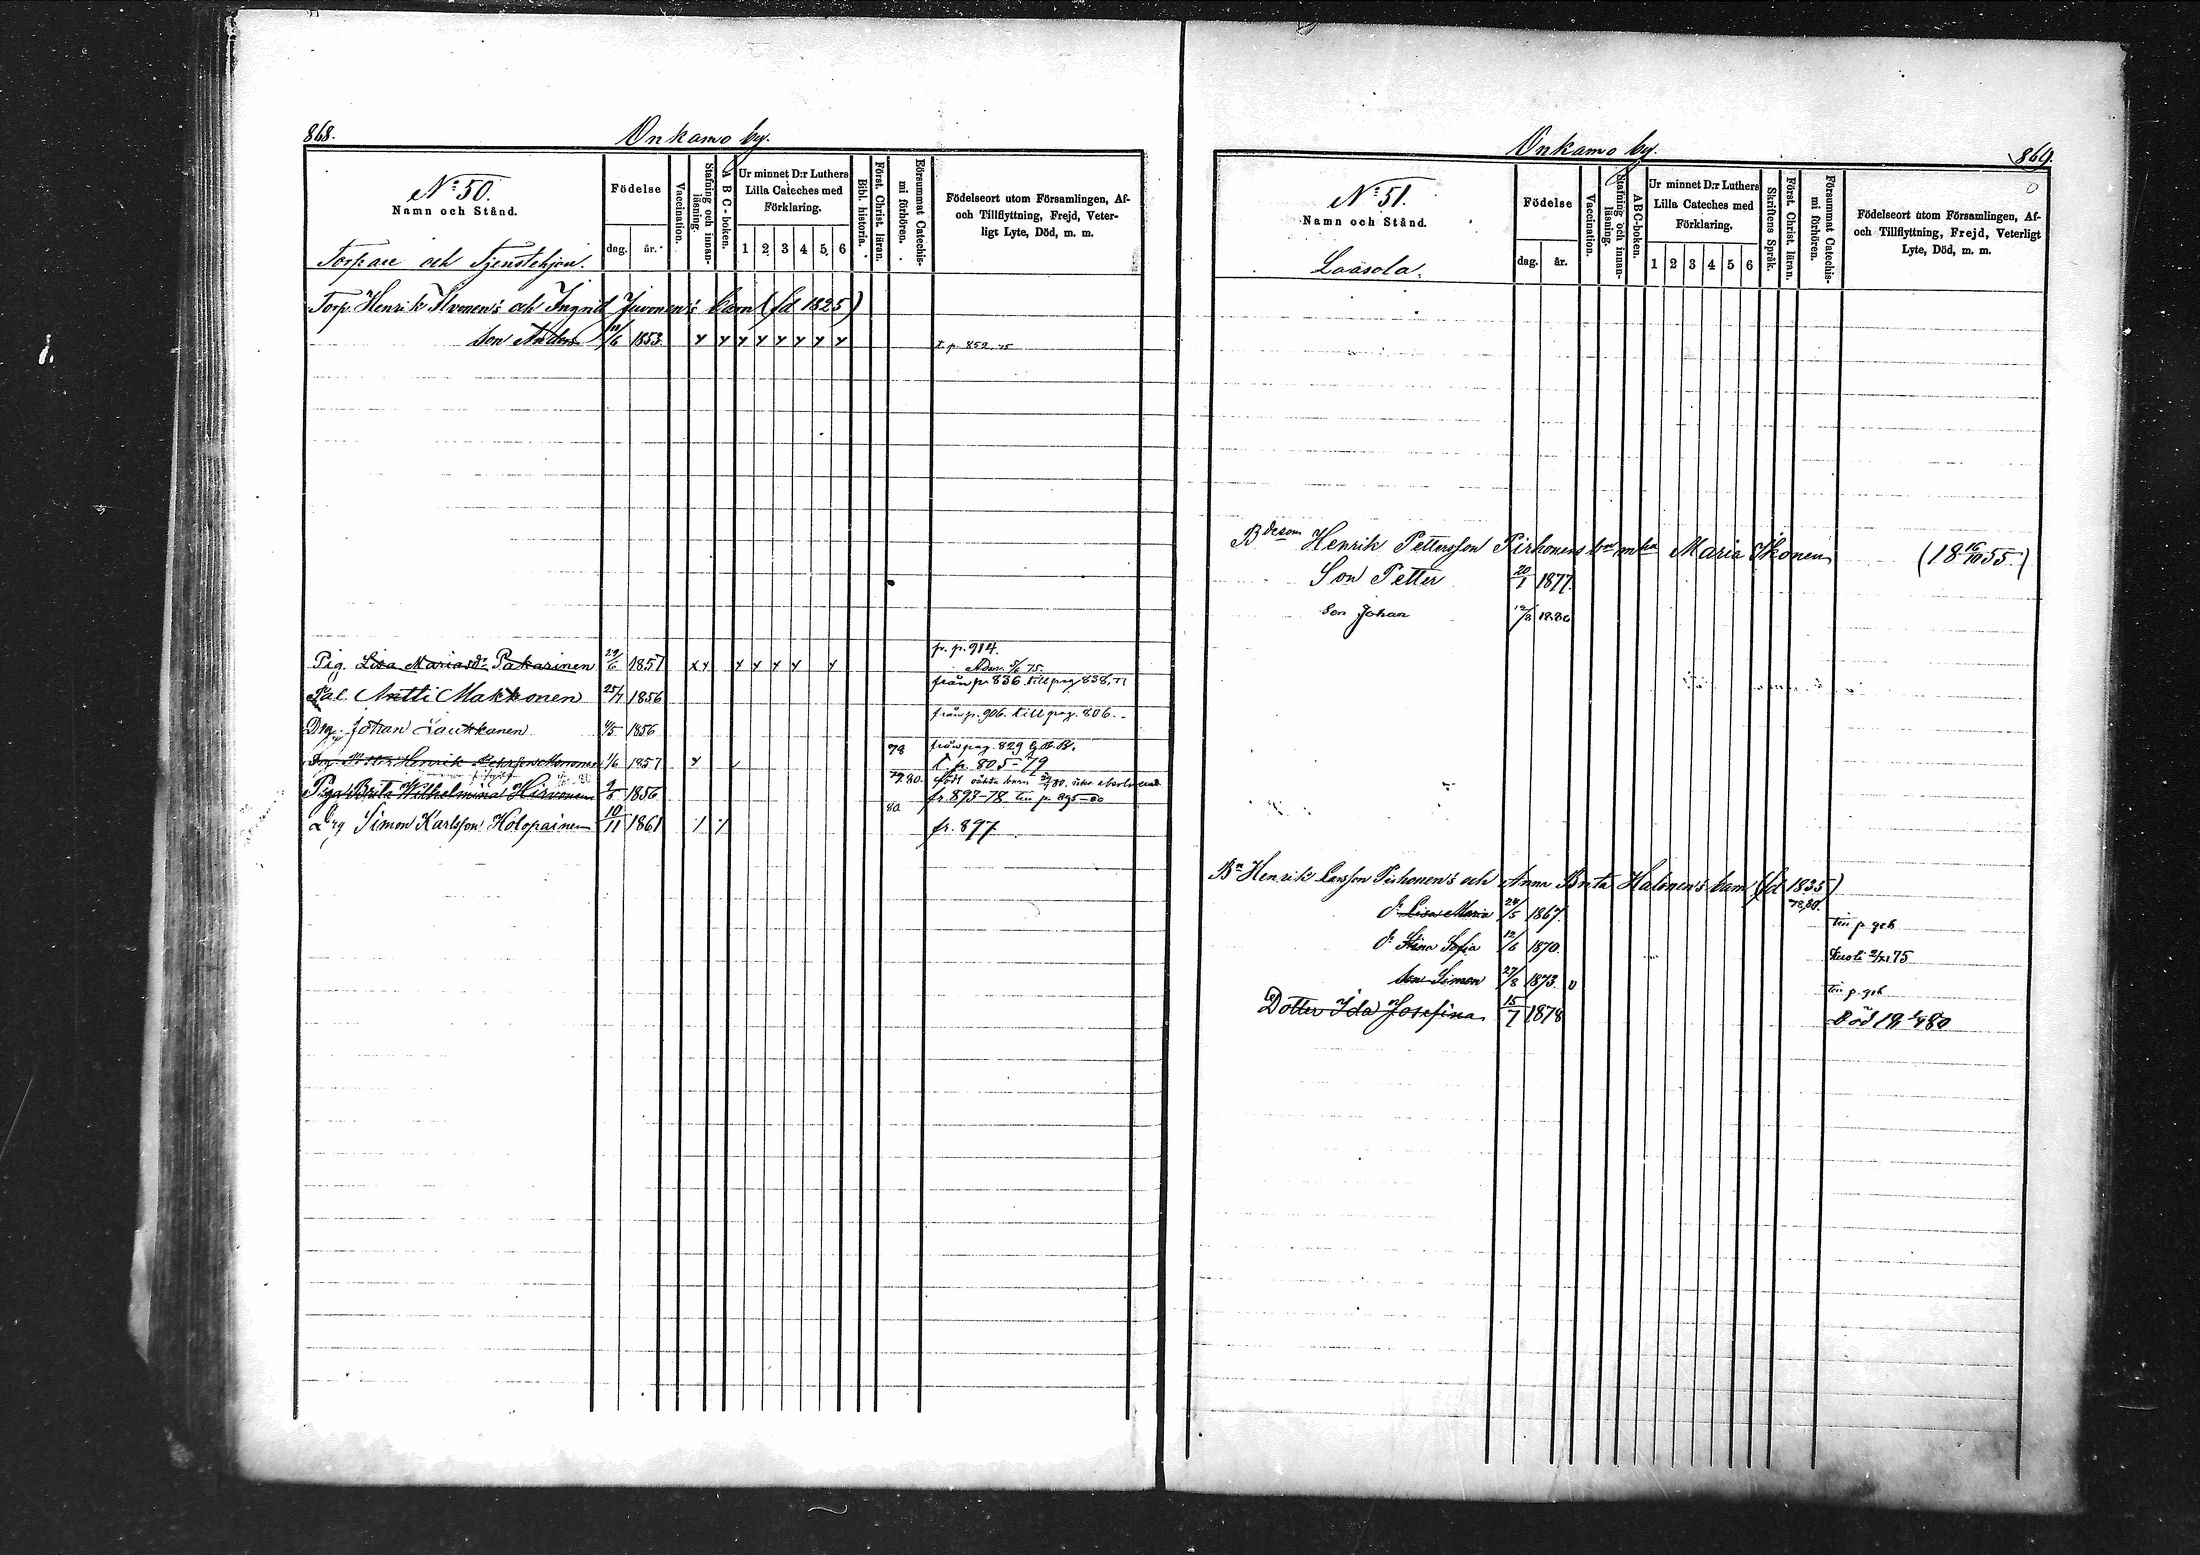 868.
Onkamo by.
No: 50.
Namn och Stånd.
Torpare och Tjenstehjon.
Födelse
dag.
år.
Vaccination.
Stafning och innan-
läsning.
A B C-boken.
Ur minnet D:r Luthers
Lilla Cateches med
Förklaring.
1 2 3 4 5 6
Bibl. historia.
Först. Christ. läran.
Försummat Catechis-
mi förhören.
Födelseort utom Församlingen, Af-
och Tillflyttning, Frejd, Veter-
ligt Lyte, Död, m. m.
Torp. Henrik Ilvonen's och Ingrid Juvonen's barn (fd 1825)
son Anders 11/6 1853. t. p. 852. 75
fr. p. 914.
Pig. Lisa Mariasdr Pakarinen 29/6 1857
från p. 836 till pag 838.
Pal. Antti Makkonen 25/7 1856
från p. 906. till pag. 806.
Drg. Johan Laukkanen 4/5 1856
78 från pag. 829
Henrik 1/6 1857 t. p. 805-79
79.80.
Piga Brita Wilhelmina Hirvonen 9/5 1856 fr. 893-78 till p. 895-80
80.
Drg Simon Karlsson Holopainen 10/11 1861 fr. 897
Onkamo by.
869.
No: 51.
Namn och Stånd.
Laäsola.
Födelse
dag.
år.
Vaccination.
Stafning och innan-
läsning.
ABC-boken.
Ur minnet D:r Luthers
Lilla Cateches med
Förklaring.
1 2 3 4 5 6
Skriftens Språk.
Först. Christ. läran.
Försummat Catechis-
mi förhören.
Födelseort utom Församlingen, Af-
och Tillflyttning, Frejd, Veterligt
Lyte, Död, m. m.
Bdeson Henrik Pettersson Pirhonens bn m hu Maria Ikonen (18 16/10 55.)
Son Petter 20/1 1877.
Son Johan 12/8 1880
Bn Henrik Larsson Pirhonen's och Anna Brita Halonen's barn (fd 1835)
79.80.
dr Lisa Maria 24/5 1867.
dr Stina Sofia 12/6 1870.
son Simon 27/8 1873. v
Dotter Ida Josefina 15/7 1878 Död 19/4 80